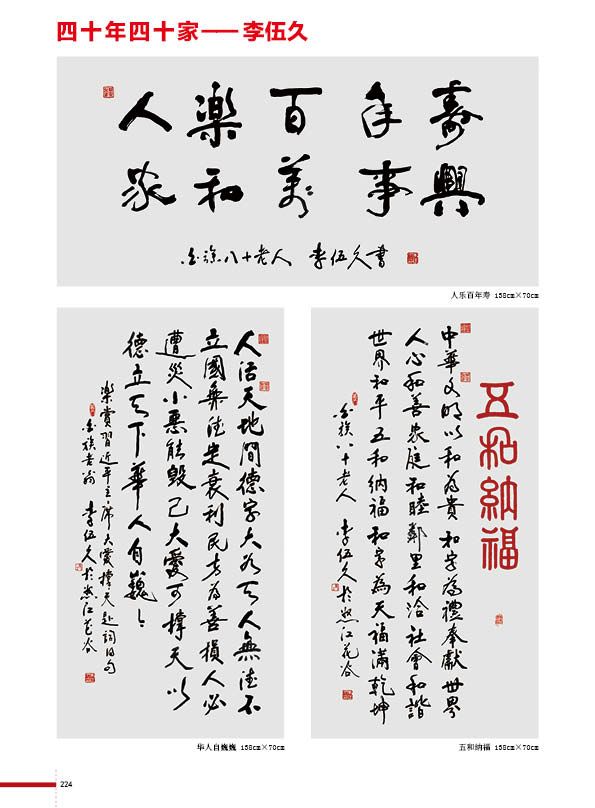 四十年四十家——李伍久
人樂百年壽
家和萬事興
白族八十老人 李伍久書
人乐百年寿 138cm×70cm
人活天地間德字大为天人無德不
立國無德定衰利民者為善損人必
遭災小惡能毀己大愛可撐天以
德立天下華人自巍々
樂賞習近平主席大愛撐天 詞 句
白族老翁 李伍久於怒江花谷
华人自巍巍 138cm×70cm
五和納福
中華文明以和為貴和字為禮奉獻世界
人心和善家庭和睦鄰里和洽社會和諧
世界和平五和納福和字為天福滿乾坤
白族八十老人 李伍久於怒江花谷
五和纳福 138cm×70cm
224